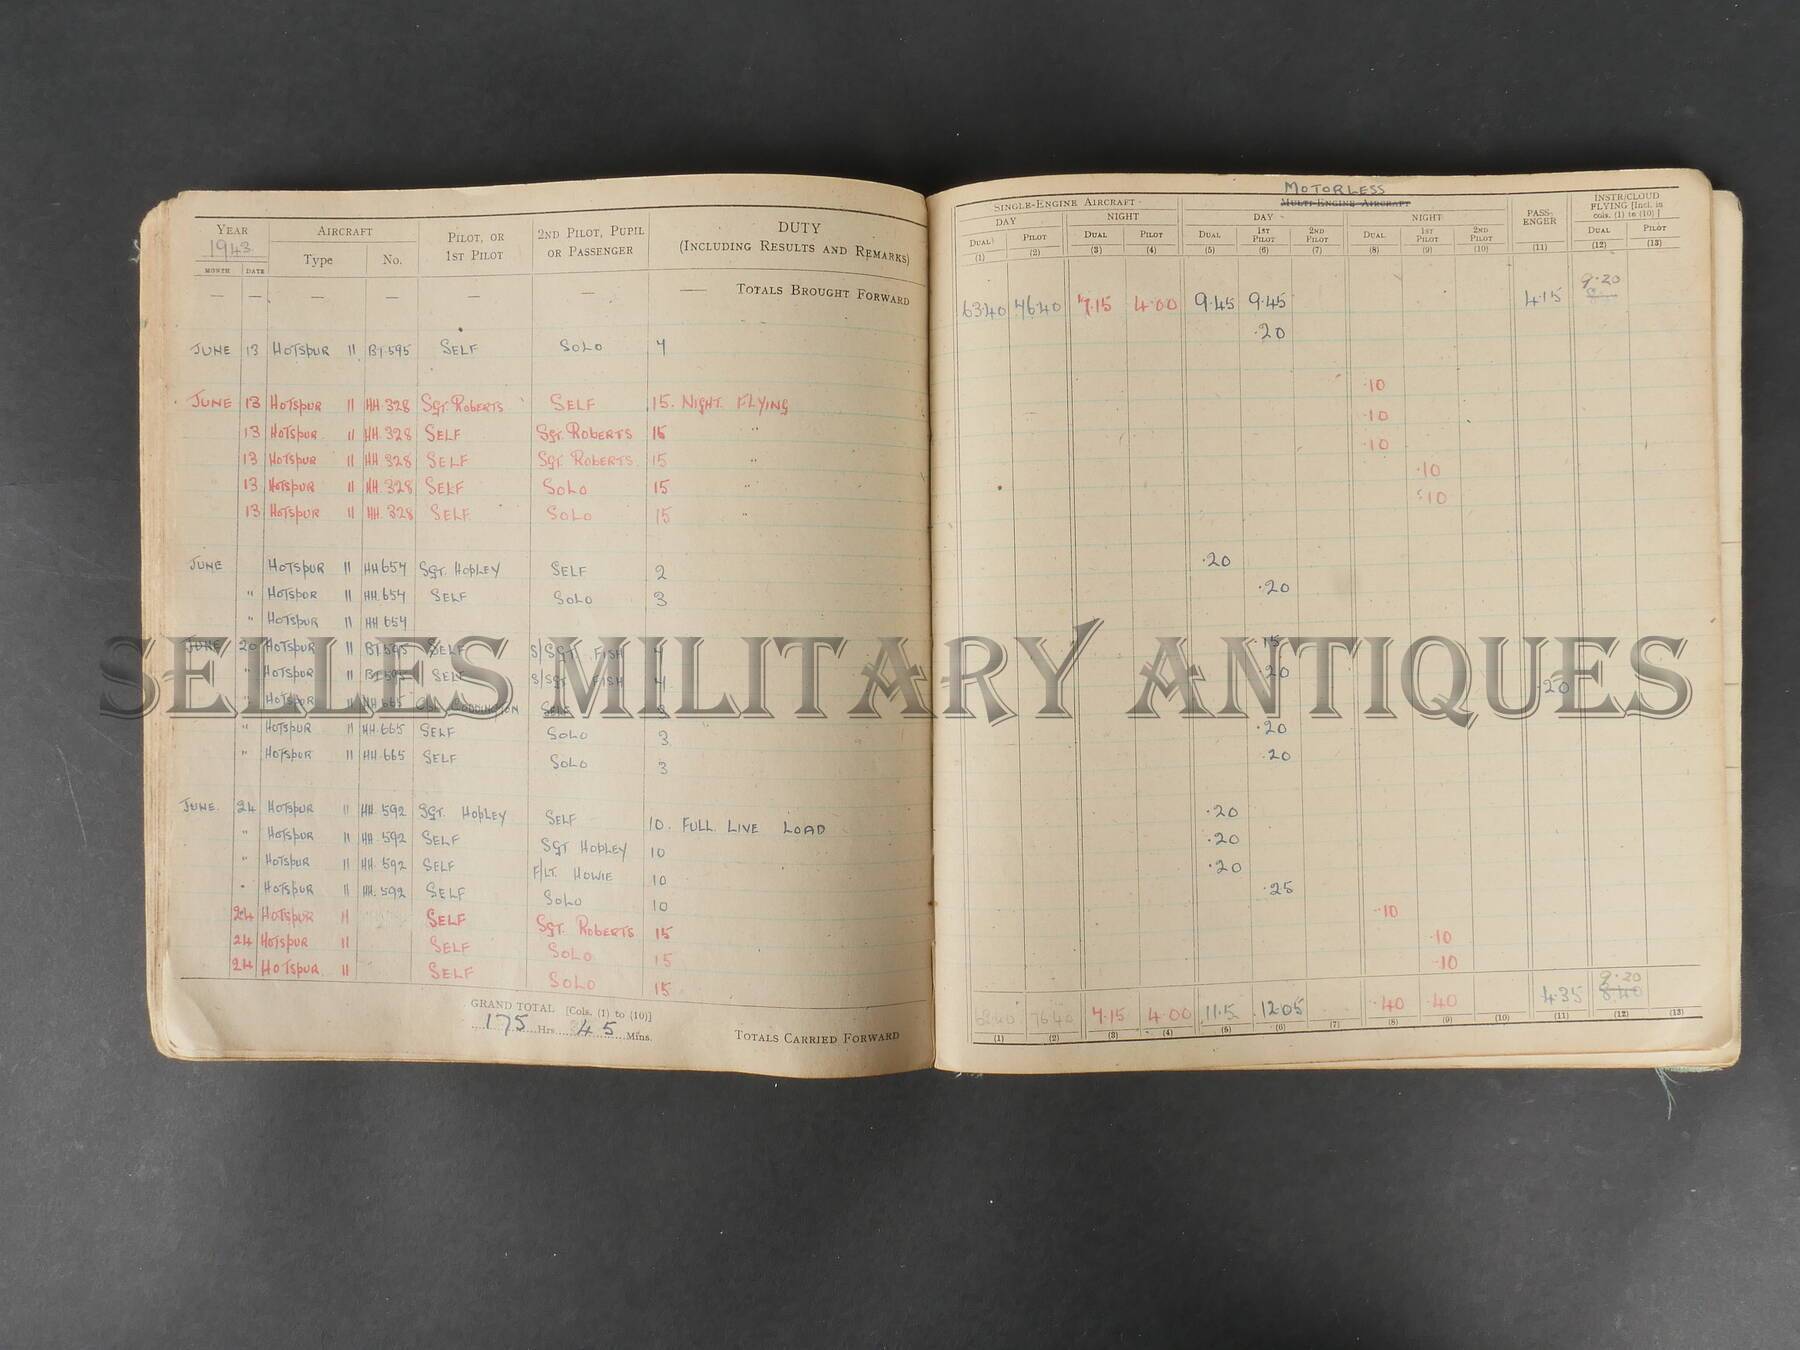 YEAR AIRCRAFT PILOT, OR 1ST PILOT 2ND PILOT, PUPIL OR PASSENGER DUTY (INCLUDING RESULTS AND REMARKS)
1943 Type No.
MONTH DATE
— — — — — — — TOTALS BROUGHT FORWARD
JUNE 13 HOTSPUR II BT.595 SELF SOLO 4
JUNE 13 HOTSPUR II HH.328 SGT. ROBERTS SELF 15. NIGHT FLYING
13 HOTSPUR II HH.328 SELF SGT. ROBERTS 15 "
13 HOTSPUR II HH.328 SELF SGT. ROBERTS 15 "
13 HOTSPUR II HH.328 SELF SOLO 15 "
13 HOTSPUR II HH.328 SELF SOLO 15 "
JUNE HOTSPUR II HH654 SGT. HOPLEY SELF 2
" HOTSPUR II HH.654 SELF SOLO 3
" HOTSPUR II HH654
JUNE 20 HOTSPUR II BT595 SELF S/SGT FISH 4
" HOTSPUR II BT595 SELF S/SGT FISH 4
" HOTSPUR II HH665 CODDINGTON SELF
" HOTSPUR II HH.665 SELF SOLO 3
" HOTSPUR II HH.665 SELF SOLO 3
JUNE. 24 HOTSPUR II HH.592 SGT. HOPLEY SELF 10. FULL LIVE LOAD
" HOTSPUR II HH.592 SELF SGT HOPLEY 10
" HOTSPUR II HH.592 SELF F/LT. HOWIE 10
" HOTSPUR II HH.592 SELF SOLO 10
24 HOTSPUR II SELF SGT. ROBERTS 15
24 HOTSPUR II SELF SOLO 15
24 HOTSPUR II SELF SOLO 15
GRAND TOTAL [Cols. (1) to (10)]
175 Hrs. 45 Mins.
TOTALS CARRIED FORWARD
MOTORLESS
SINGLE-ENGINE AIRCRAFT MULTI-ENGINE AIRCRAFT PASS-ENGER INSTR/CLOUD FLYING [Incl. in cols. (1) to (10)]
DAY NIGHT DAY NIGHT
DUAL PILOT DUAL PILOT DUAL 1ST PILOT 2ND PILOT DUAL 1ST PILOT 2ND PILOT DUAL PILOT
(1) (2) (3) (4) (5) (6) (7) (8) (9) (10) (11) (12) (13)
63.40 76.40 7.15 4.00 9.45 9.45 4.15 9.20
.20
.10
.10
.10
.10
.10
.20
.20
15
.20
.20
.20
.20
.20
.20
.20
.25
.10
.10
.10
63.40 76.40 7.15 4.00 11.5 12.05 .40 .40 4.35 9.20 8.40
(1) (2) (3) (4) (5) (6) (7) (8) (9) (10) (11) (12) (13)
SELLES MILITARY ANTIQUES